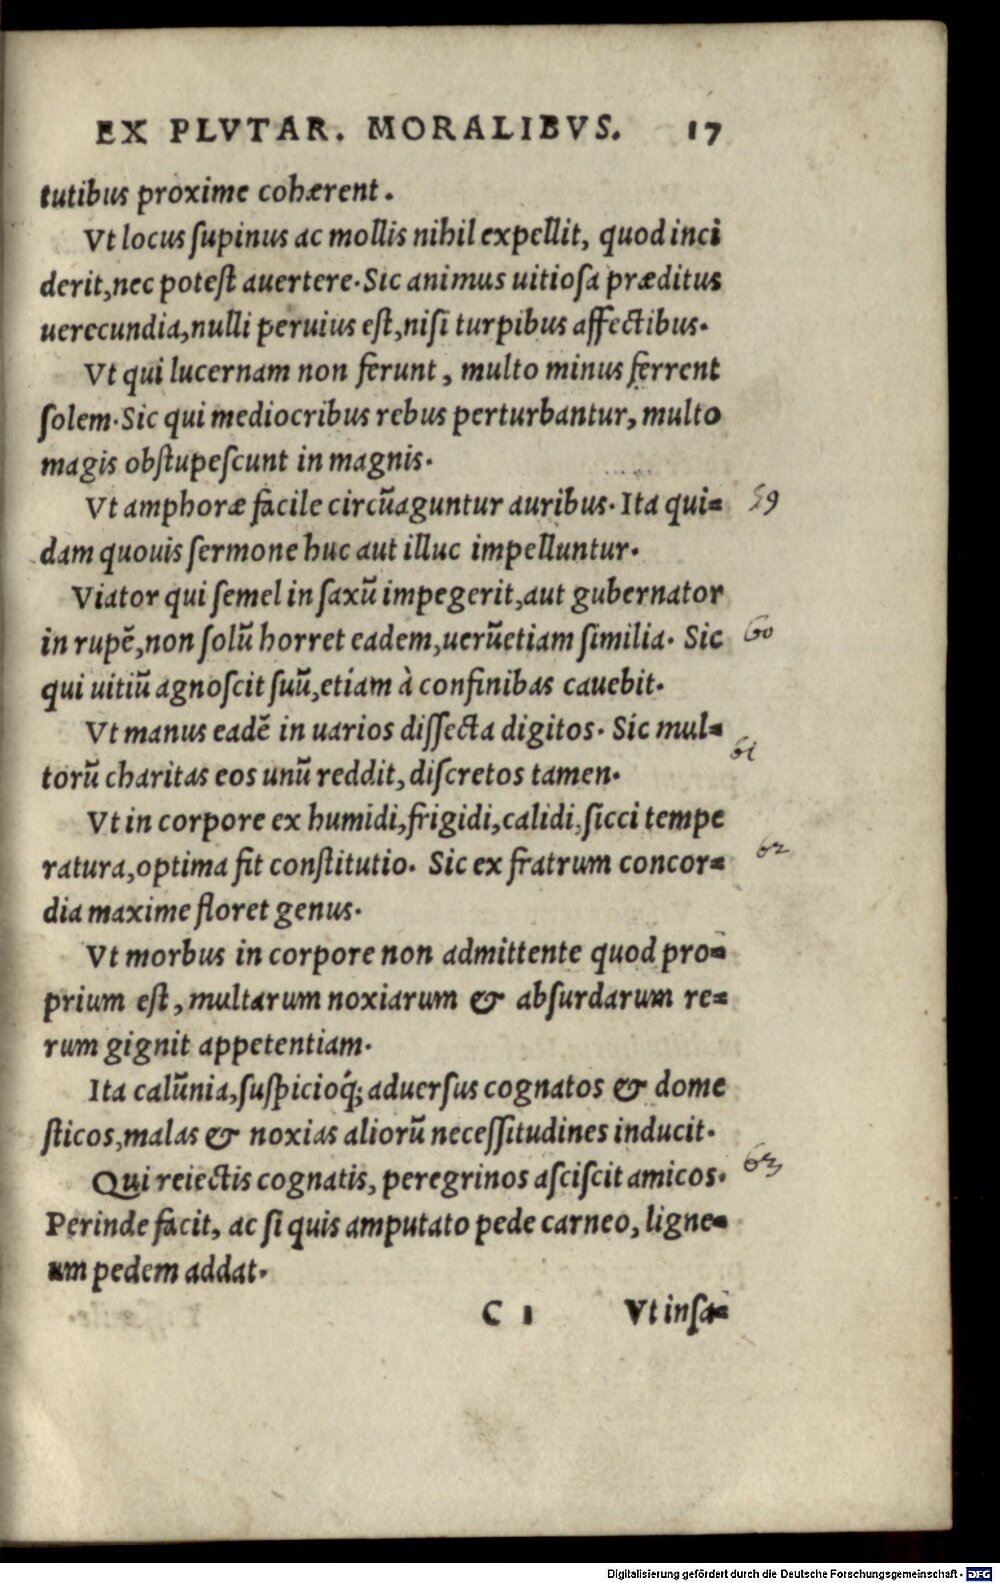 EX PLVTAR. MORALIBVS. 17
tutibus proxime cohærent.
Vt locus ſupinus ac mollis nihil expellit, quod inci
derit, nec poteſt auertere. Sic animus uitioſa præditus
uerecundia, nulli peruius eſt, niſi turpibus affectibus.
Vt qui lucernam non ferunt, multo minus ferrent
ſolem. Sic qui mediocribus rebus perturbantur, multo
magis obſtupeſcunt in magnis.
Vt amphoræ facile circūaguntur auribus. Ita qui= 59
dam quouis ſermone huc aut illuc impelluntur.
Viator qui ſemel in ſaxū impegerit, aut gubernator
in rupē, non ſolū horret eadem, uerūetiam ſimilia. Sic 60
qui uitiū agnoſcit ſuū, etiam à confinibas cauebit.
Vt manus eadē in uarios diſſecta digitos. Sic mul= 61
torū charitas eos unū reddit, diſcretos tamen.
Vt in corpore ex humidi, frigidi, calidi, ſicci tempe
ratura, optima fit conſtitutio. Sic ex fratrum concor= 62
dia maxime floret genus.
Vt morbus in corpore non admittente quod pro=
prium eſt, multarum noxiarum & abſurdarum re=
rum gignit appetentiam.
Ita calūnia, ſuſpicioq́; aduerſus cognatos & dome
ſticos, malas & noxias aliorū neceſſitudines inducit.
Qui reiectis cognatis, peregrinos aſciſcit amicos. 63
Perinde facit, ac ſi quis amputato pede carneo, ligne=
um pedem addat.
C 1 Vt inſa=
Digitalisierung gefördert durch die Deutsche Forschungsgemeinschaft - DFG